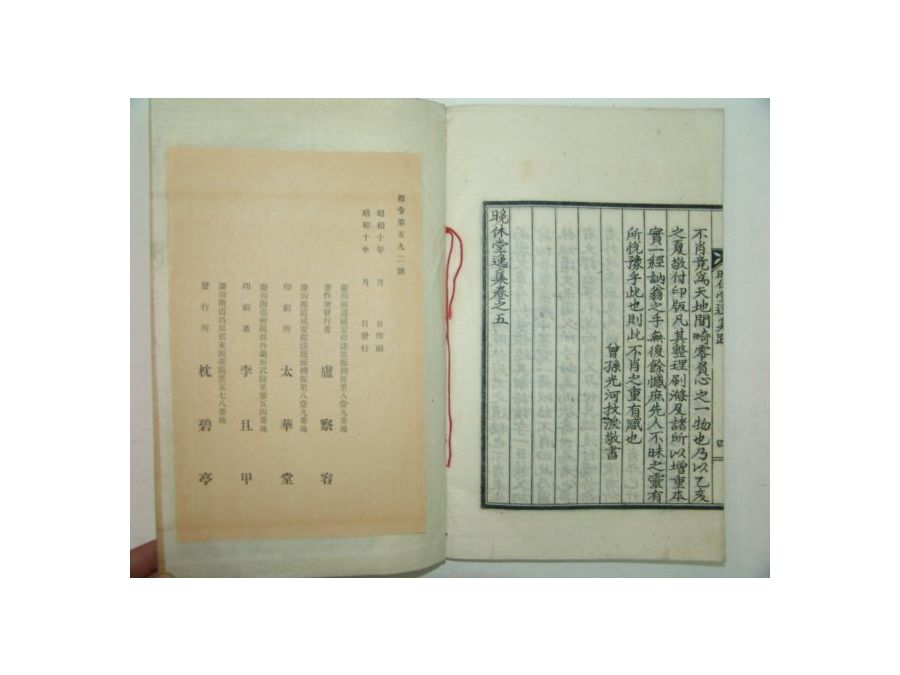 晩休堂逸集跋
不肖竟爲天地間畸零負心之一物也乃以乙亥
之夏敬付印版凡其整理刷滌及諸所以增重本
實一經訥翁之手無復餘憾庶先人不昧之靈有
所悅豫乎此也則此不肖之重有感也
曾孫光河抆淚敬書
晩休堂逸集卷之五
指令第五九二號
昭和十年 月 日印刷
昭和十年 月 日發行
慶尙南道咸安郡漆原面
著作兼發行者 盧察容
慶尙南道咸安郡漆原面
印刷所 太華堂
印刷者 李且甲
發行所 枕碧亭